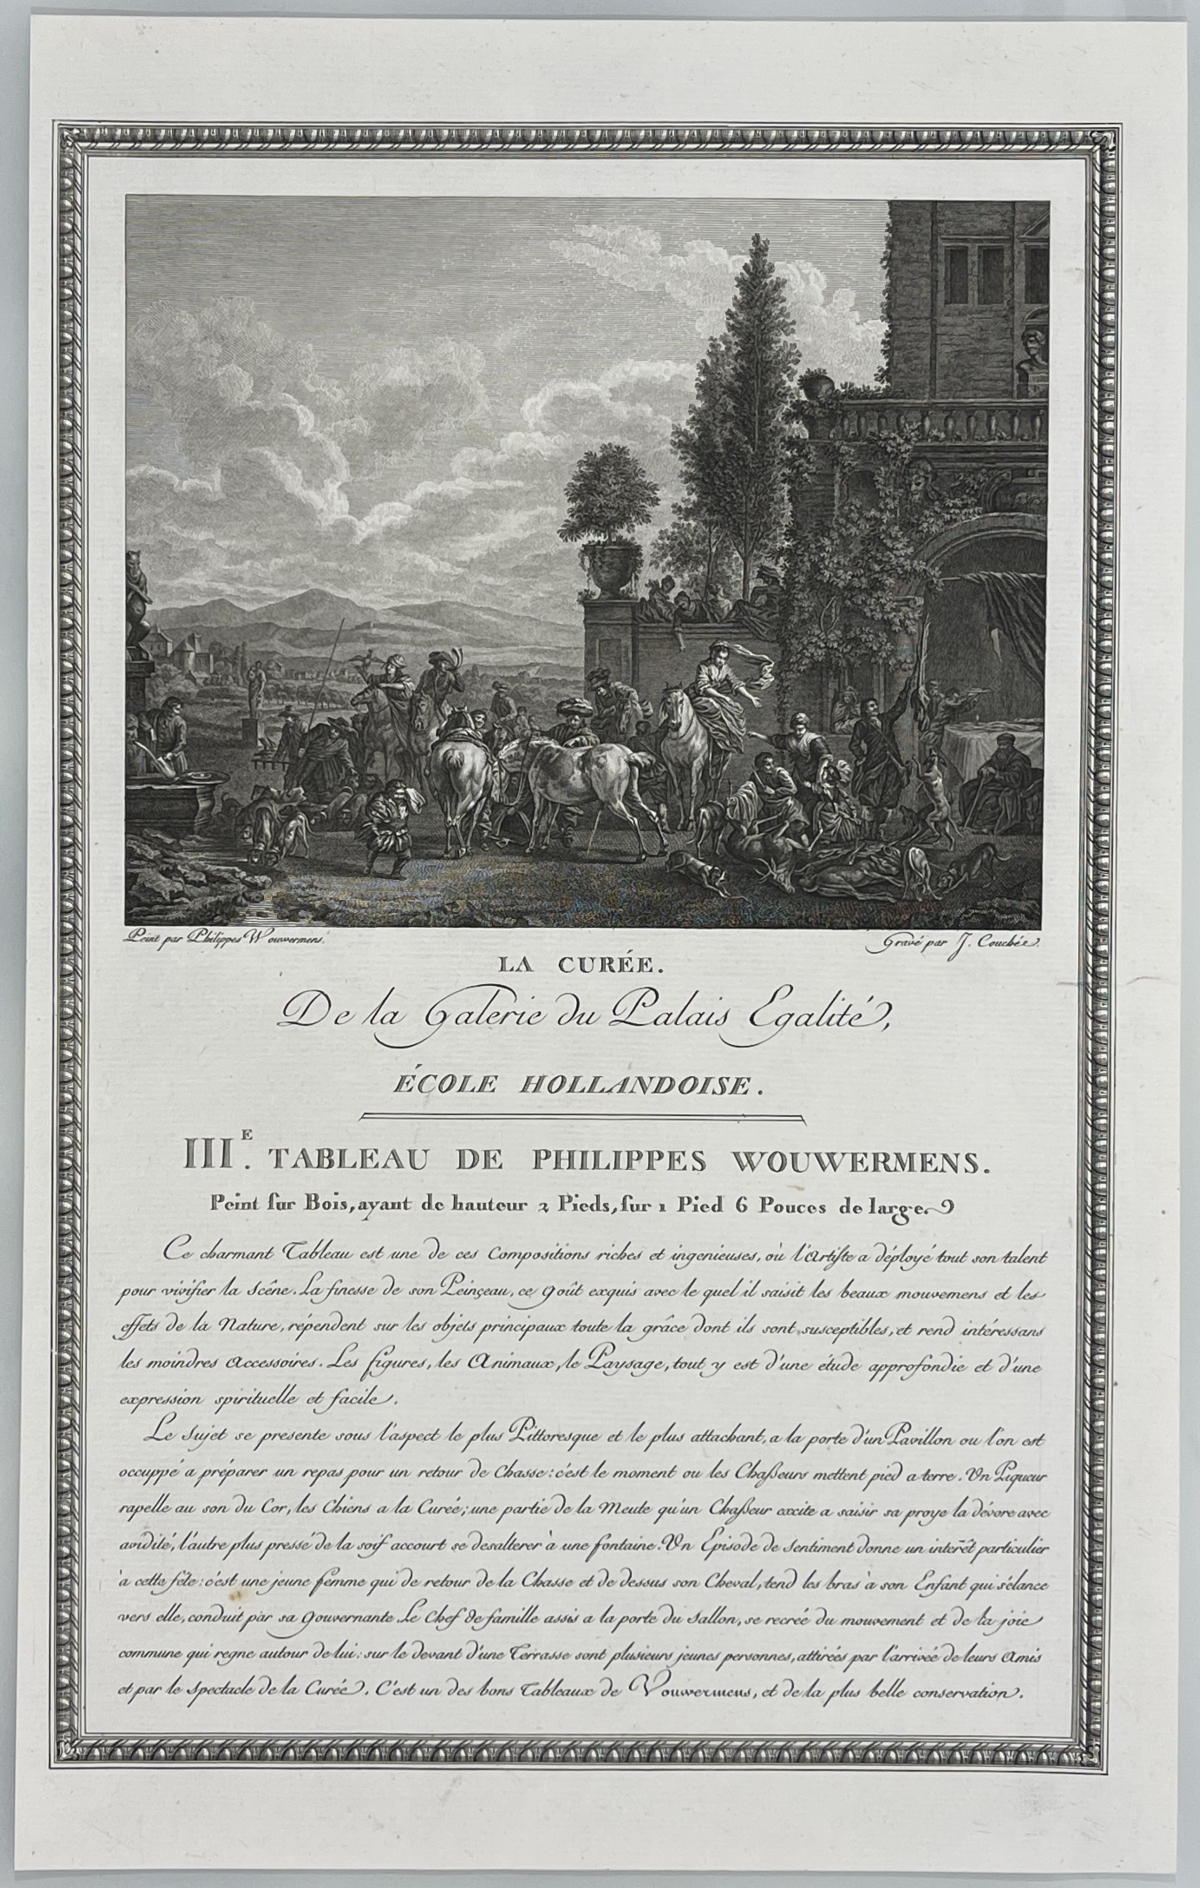 Peint par Philippes Wouwermens.
Gravé par J. Couché.
LA CURÉE.
De la Galerie du Palais Egalité,
ÉCOLE HOLLANDOISE.
III.E TABLEAU DE PHILIPPES WOUWERMENS.
Peint sur Bois, ayant de hauteur 2 Pieds, sur 1 Pied 6 Pouces de large.
Ce charmant Tableau est une de ces Compositions riches et ingenieuses, où l'Artiste a déployé tout son talent
pour vivifier la Scêne. La finesse de son Peinçeau, ce goût exquis avec le quel il saisit les beaux mouvemens et les
effets de la Nature, répendent sur les objets principaux toute la grâce dont ils sont susceptibles, et rend intéressans
les moindres Accessoires. Les figures, les Animaux, le Paysage, tout y est d'une étude approfondie et d'une
expression spirituelle et facile.
Le Sujet se presente sous l'aspect le plus Pittoresque et le plus attachant, a la porte d'un Pavillon ou l'on est
occuppé a préparer un repas pour un retour de Chasse: c'est le moment ou les Chasseurs mettent pied a terre. Un Piqueur
rapelle au son du Cor, les Chiens a la Curée; une partie de la Meute qu'un Chasseur excite a saisir sa proye la dévore avec
avidité, l'autre plus pressé de la soif accourt se desalterer à une fontaine. Un Episode de Sentiment donne un interêt particulier
à cette fête: c'est une jeune femme qui de retour de la Chasse et de dessus son Cheval, tend les bras à son Enfant qui s'élance
vers elle, conduit par sa Gouvernante. Le Chef de famille assis a la porte du Sallon, se recrée du mouvement et de la joie
commune qui regne autour de lui: sur le devant d'une Terrasse sont plusieurs jeunes personnes, attirées par l'arrivée de leurs Amis
et par le Spectacle de la Curée. C'est un des bons Tableaux de Vouwermens, et de la plus belle conservation.